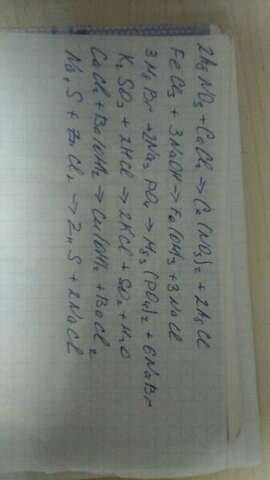 2AgNO3 + CaCl2 → Ca(NO3)2 + 2AgCl
FeCl3 + 3NaOH → Fe(OH)3 + 3NaCl
3MgBr + 2Na3PO4 → Mg3(PO4)2 + 6NaBr
K2SO3 + 2HCl → 2KCl + SO2 + H2O
CuCl2 + Ba(OH)2 → Cu(OH)2 + BaCl2
Na2S + ZnCl2 → ZnS + 2NaCl